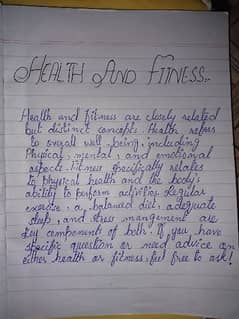 HEALTH AND FITNESS..
Health and fitness are closely related
but distinct concepts. Health refers
to overall well being, including
Physical, mental, and emotional
aspects. Fitness specifically relates
to physical health and the body's
ability to perform activities. Regular
exercise, a balanced diet, adequate
sleep, and stress mangement are
key components of both. If you have
specific question or need advice on
either health or fitness, feel free to ask!